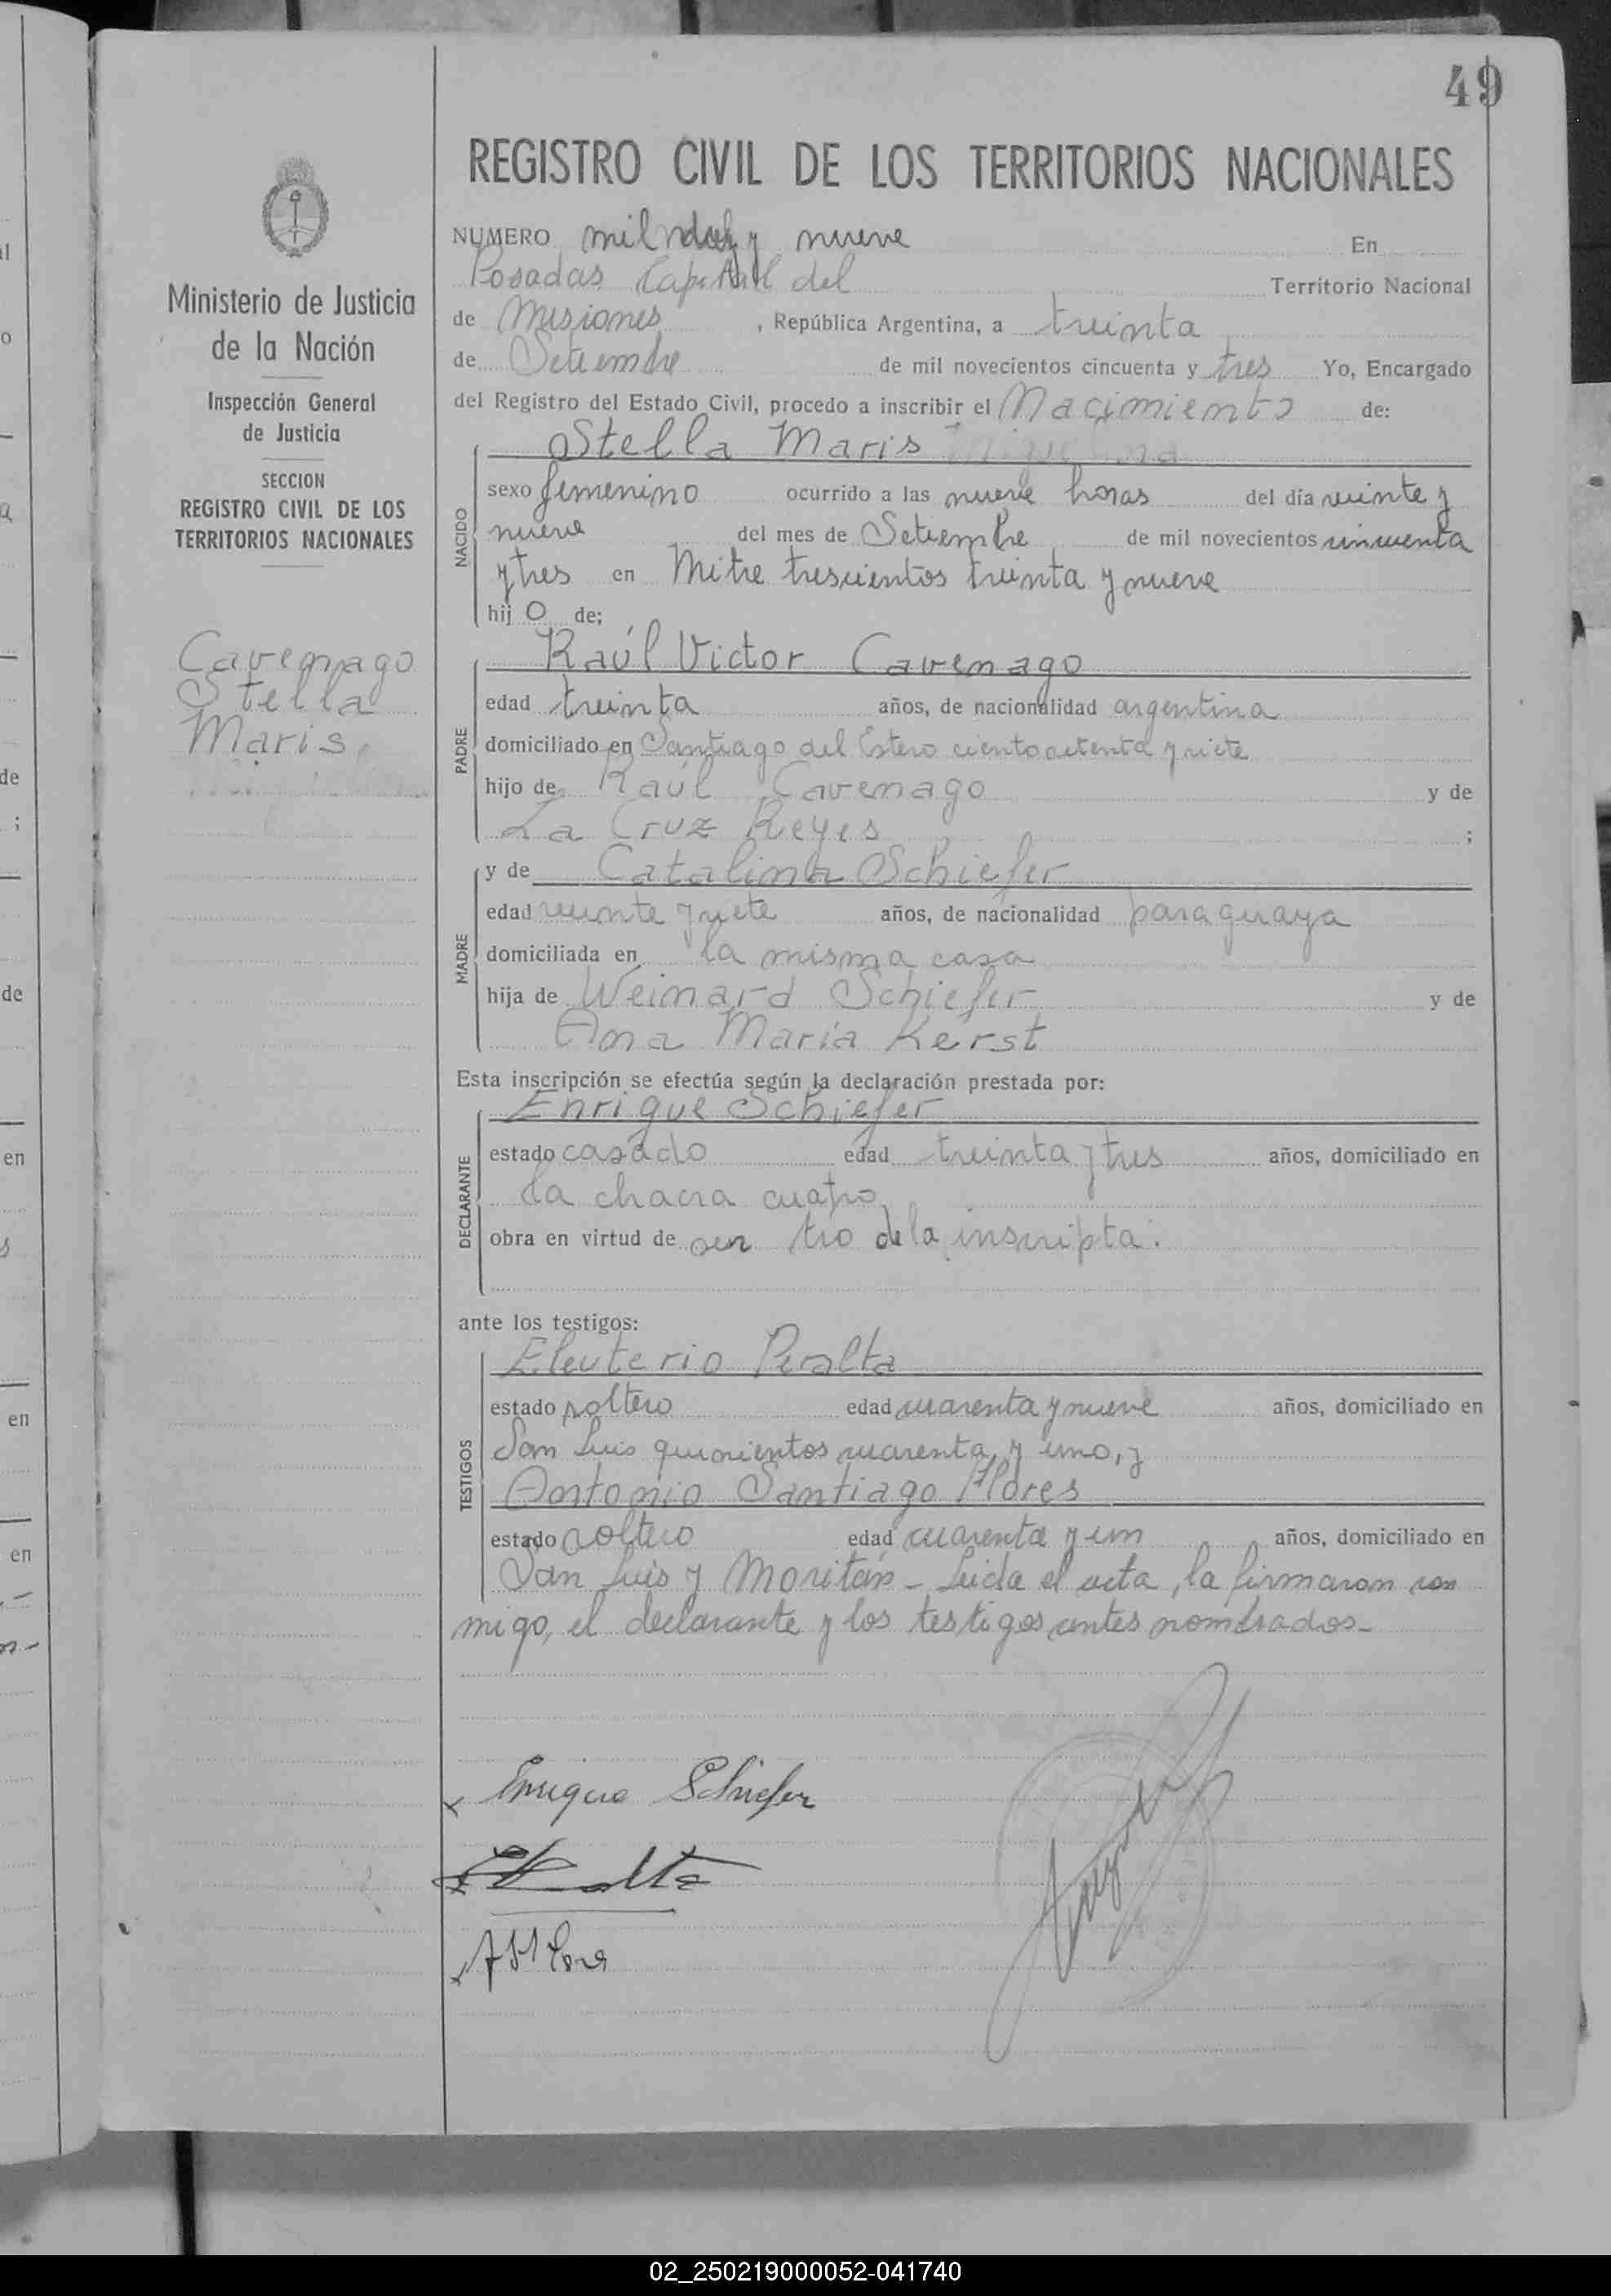 49
REGISTRO CIVIL DE LOS TERRITORIOS NACIONALES
NUMERO mil y nueve En
Posadas Capital del Territorio Nacional
de Misiones, República Argentina, a treinta
de Setiembre de mil novecientos cincuenta y tres Yo, Encargado
del Registro del Estado Civil, procedo a inscribir el Nacimiento de:
Stella Maris
NACIDO
sexo femenino ocurrido a las nueve horas del día veinte y
nueve del mes de Setiembre de mil novecientos cincuenta
y tres en Mitre trescientos treinta y nueve
hij o de;
Raúl Victor Cavenago
PADRE
edad treinta años, de nacionalidad argentina
domiciliado en Santiago del Estero ciento setenta y siete
hijo de Raúl Cavenago y de
La Cruz Reyes ;
y de Catalina Schiefer
MADRE
edad veinte y siete años, de nacionalidad paraguaya
domiciliada en la misma casa
hija de Weinard Schiefer y de
Ana María Kerst
Esta inscripción se efectúa según la declaración prestada por:
Enrique Schiefer
DECLARANTE
estado casado edad treinta y tres años, domiciliado en
la chacra cuatro
obra en virtud de ser tio de la inscripta.
ante los testigos:
Eleuterio Peralta
TESTIGOS
estado soltero edad cuarenta y nueve años, domiciliado en
San Luis quinientos cuarenta y uno, y
Antonio Santiago Flores
estado soltero edad cuarenta y un años, domiciliado en
San Luis y Moritán - Leida el acta, la firmaron con
migo, el declarante y los testigos antes nombrados-
Enrique Schiefer
Ministerio de Justicia
de la Nación
Inspección General
de Justicia
SECCION
REGISTRO CIVIL DE LOS
TERRITORIOS NACIONALES
Cavenago
Stella
Maris
al
o
a
de
;
de
en
s
en
en
02_250219000052-041740